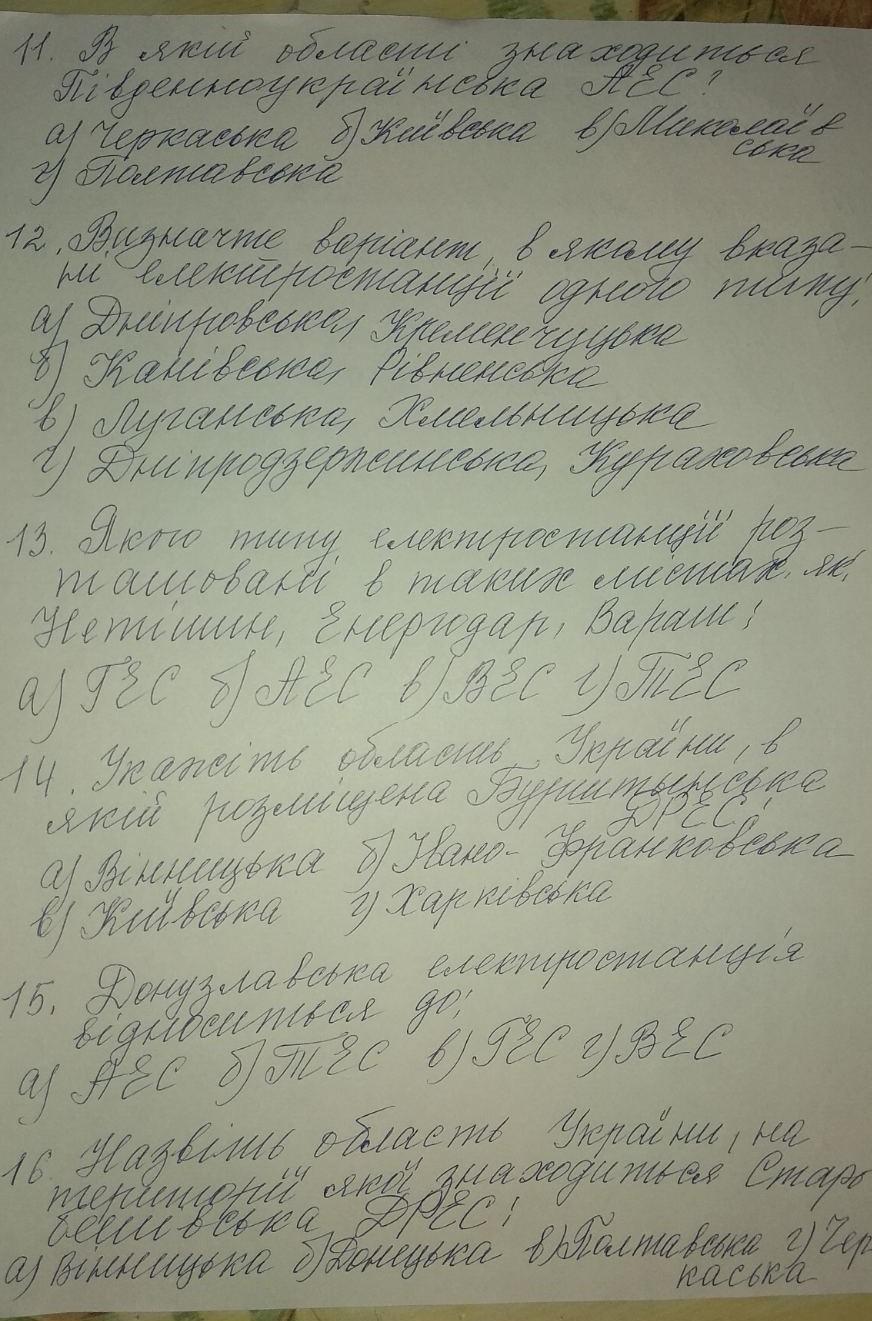 11. В якій області знаходиться
Південноукраїнська АЕС?
а) Черкаська б) Київська в) Миколаїв
ська
г) Полтавська
12. Визначте варіант, в якому вказа-
ні електростанції одного типу:
а) Дніпровська, Кременчуцька
б) Канівська, Рівненська
в) Луганська, Хмельницька
г) Дніпродзержинська, Курахоvська
13. Якого типу електростанції роз-
ташовані в таких містах, як:
Нетішин, Енергодар, Вараш:
а) ГЕС б) АЕС в) ВЕС г) ТЕС
14. Укажіть область України, в
якій розміщена Бурштинська
ДРЕС:
а) Вінницька б) Івано-Франковська
в) Київська г) Харківська
15. Донузлавська електростанція
відноситься до:
а) АЕС б) ТЕС в) ГЕС г) ВЕС
16 Назвіть область України, на
території якої знаходиться Старо
бешівська ДРЕС:
а) Вінницька б) Донецька в) Полтавська г) Чер
каська